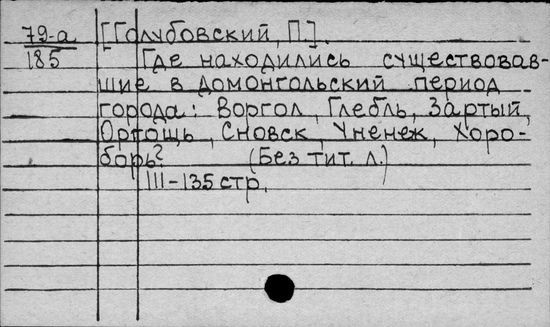 79-а [Голубовский, П.].
185 Где находились существовав-
шие в домонгольский период
города: Воргол, Глебль, Зартый,
Оргощь, Сновск, Уненеж, Хоро-
борь? (Без тит. л.)
III-135 стр.